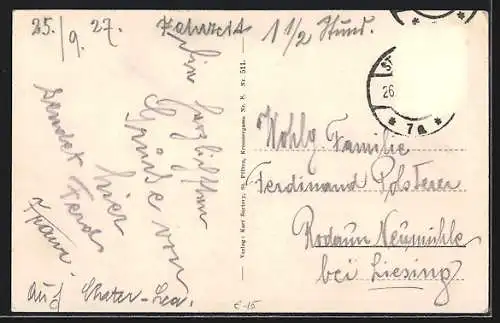 25./9. 27. Fahrzeit 1 1/2 Stund.
Die herzlichsten
Grüße von
hier
sendet Ferd.
Franz.
Auf Wieder-Sea.
Verlag: Karl Bartory, St. Pölten, Kremsergasse Nr. 8. Nr. 511.
ST
26.
* 7a *
Wohlg. Familie
Ferdinand Polsterer
Rodaun Neumühle
bei Liesing
E-15